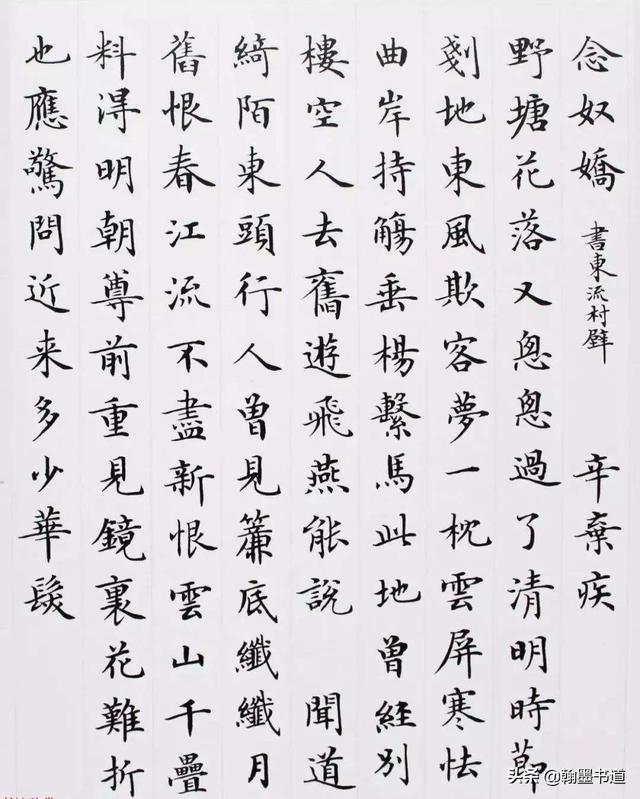 念奴嬌 書東流村壁 辛棄疾
野塘花落又悤悤過了清明時節
剗地東風欺客夢一枕雲屏寒怯
曲岸持觴垂楊繫馬此地曾經別
樓空人去舊遊飛燕能說 聞道
綺陌東頭行人曾見簾底纖纖月
舊恨春江流不盡新恨雲山千疊
料得明朝尊前重見鏡裏花難折
也應驚問近来多少華髮
头条 @翰墨书道